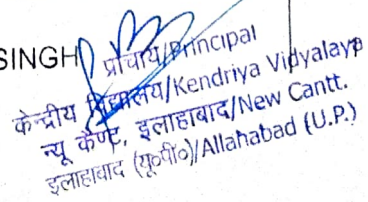 SINGH
प्राचार्य/Principal
केन्द्रीय विद्यालय/Kendriya Vidyalaya
न्यू कैण्ट, इलाहाबाद/New Cantt.
इलाहाबाद (यू०पी०)/Allahabad (U.P.)